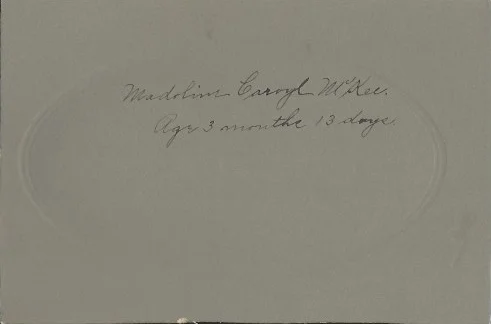 Madoline Caroyl McKee.
Age 3 months 13 days.